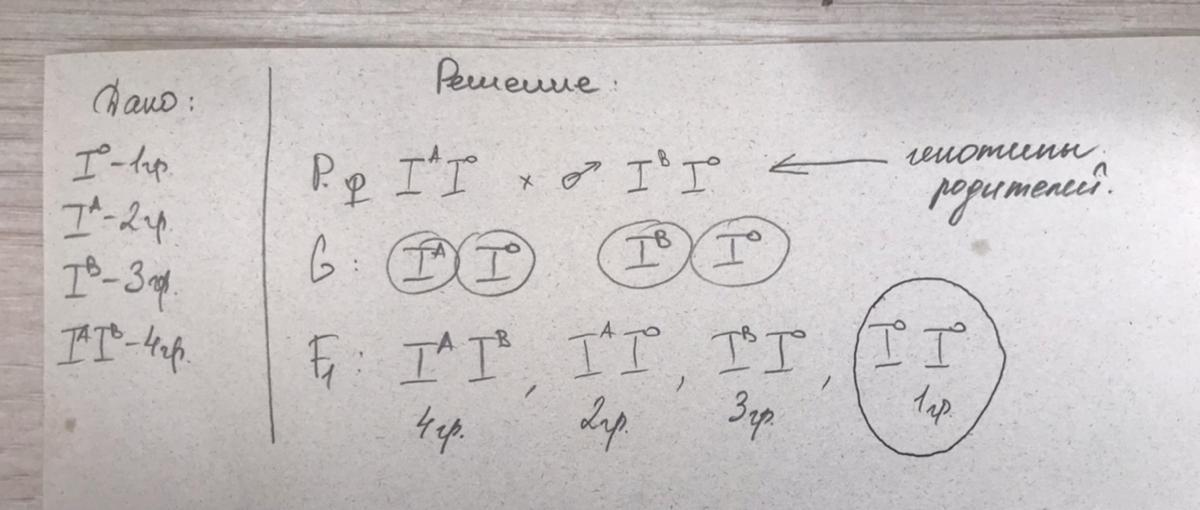 Дано:
I⁰ - 1гр.
Iᴬ - 2гр.
Iᴮ - 3гр.
IᴬIᴮ - 4гр.
Решение:
P. ♀ IᴬI⁰ × ♂ IᴮI⁰ ← генотипы
родителей.
G: Iᴬ I⁰ Iᴮ I⁰
F₁: IᴬIᴮ, IᴬI⁰, IᴮI⁰, I⁰I⁰
4гр. 2гр. 3гр. 1гр.